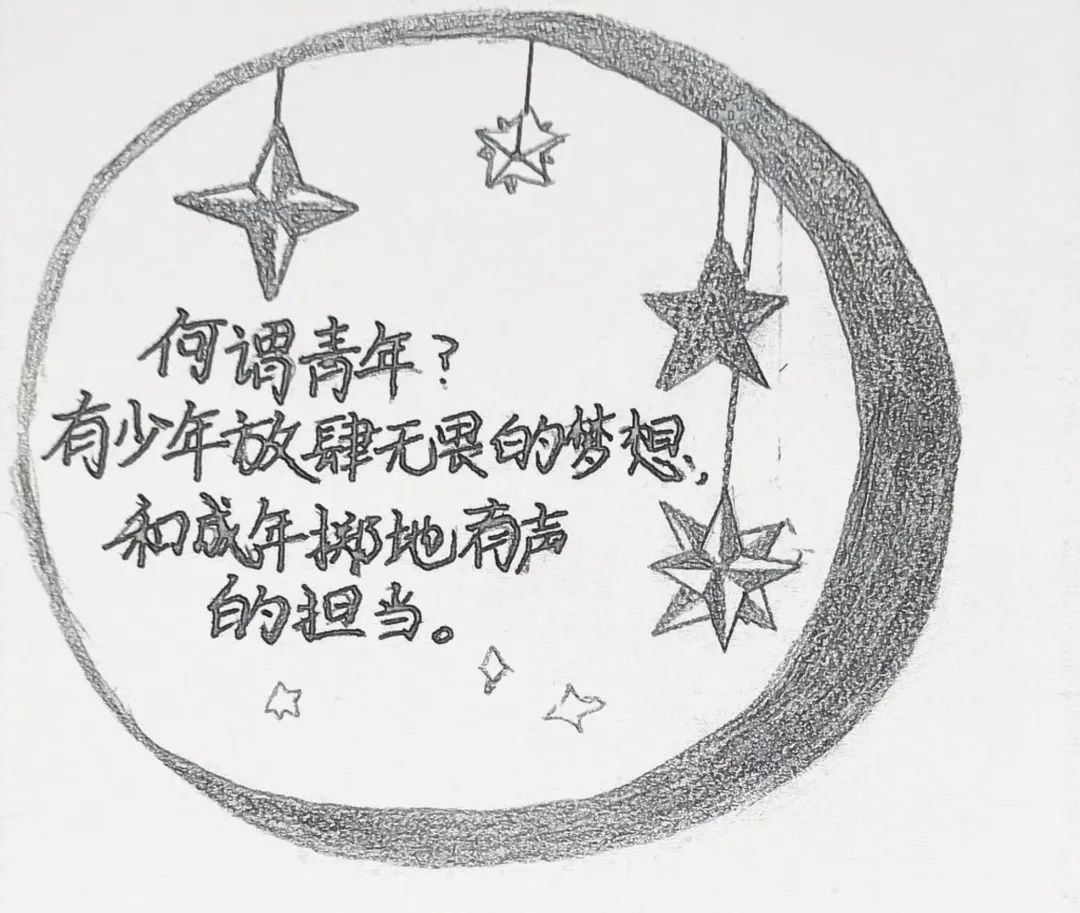 何谓青年?
有少年放肆无畏的梦想,
和成年掷地有声
的担当。